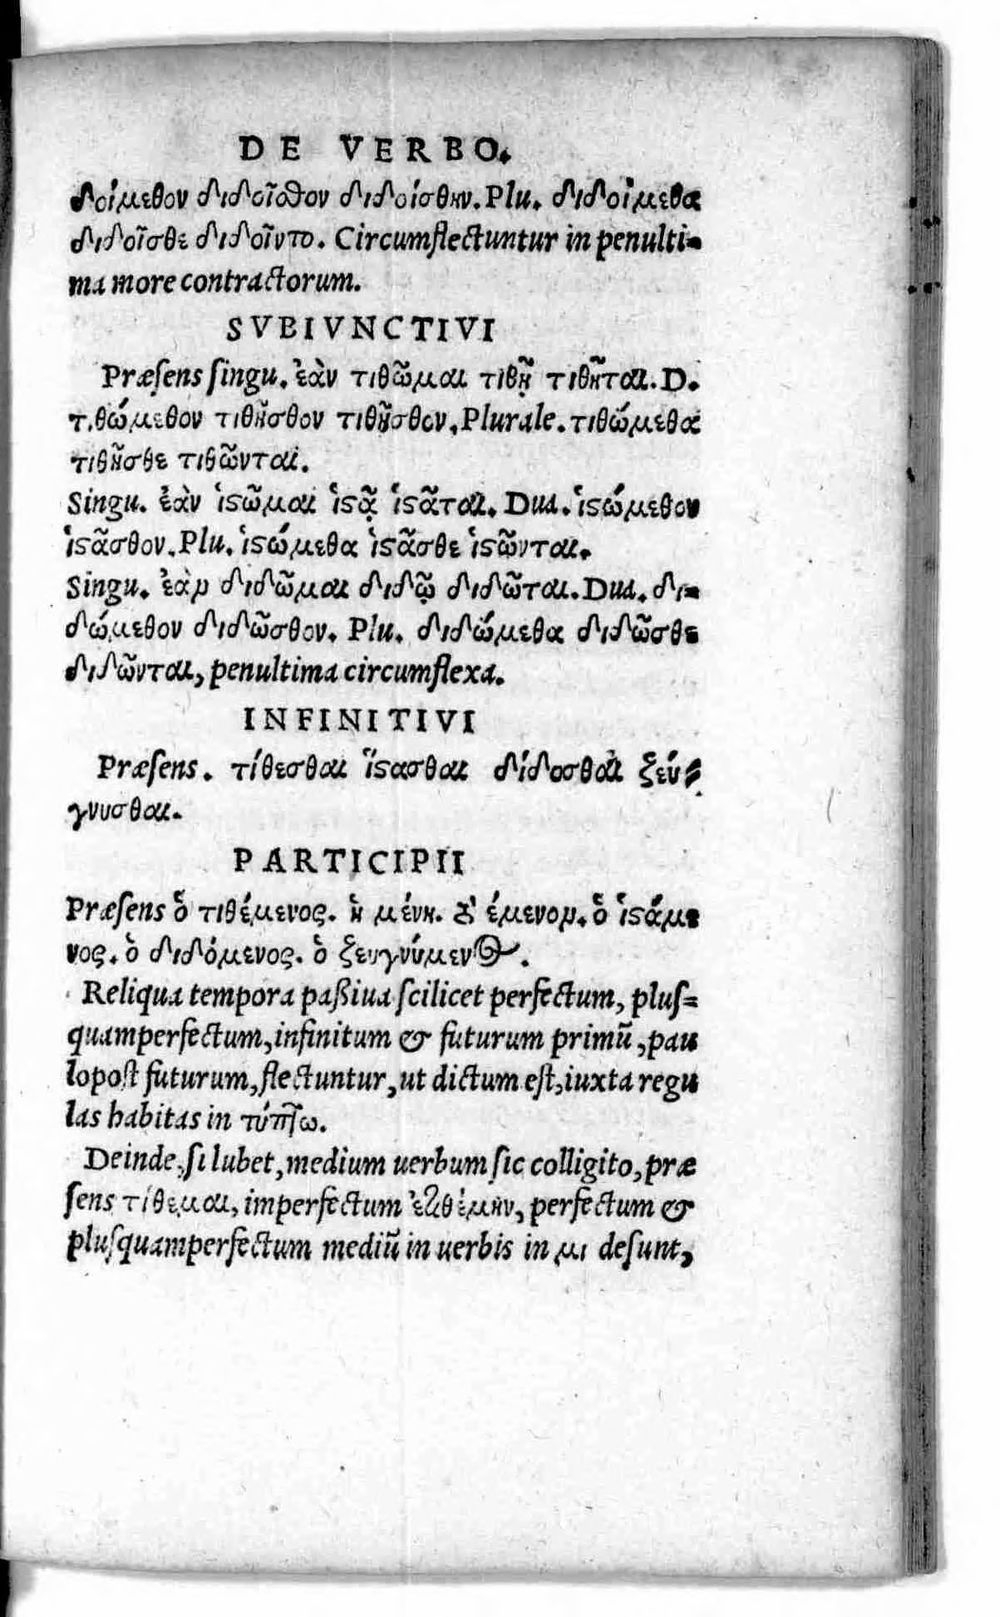 DE VERBO.
δοίμεθον διδοῖσθον διδοίσθην. Plu. διδοίμεθα
διδοῖσθε διδοῖντο. Circumflectuntur in penulti-
ma more contractorum.
SVBIVNCTIVI
Præsens singu. ἐὰν τιθῶμαι τιθῇ τιθῆται. D.
τιθώμεθον τιθῆσθον τιθῆσθον, Plurale. τιθώμεθα
τιθῆσθε τιθῶνται.
Singu. ἐὰν ἱστῶμαι ἱστᾷ ἱστᾶται. Dua. ἱστώμεθον
ἱστᾶσθον. Plu. ἱστώμεθα ἱστᾶσθε ἱστῶνται.
Singu. ἐὰν διδῶμαι διδῷ διδῶται. Dua. δι-
δώμεθον διδῶσθον. Plu. διδώμεθα διδῶσθε
διδῶνται, penultima circumflexa.
INFINITIVI
Præsens. τίθεσθαι ἵστασθαι δίδοσθαι ζεύ-
γνυσθαι.
PARTICIPII
Præsens ὁ τιθέμενος. ἡ μένη. τὸ έμενον. ὁ ἱστάμε
νος. ὁ διδόμενος. ὁ ζευγνύμενος.
Reliqua tempora paßiua scilicet perfectum, plus-
quamperfectum, infinitum & futurum primũ, pau
lopost futurum, flectuntur, ut dictum est, iuxta regu
las habitas in τύπτω.
Deinde, si lubet, medium uerbum sic colligito, præ
sens τίθεμαι, imperfectum ἐτιθέμην, perfectum &
plusquamperfectum mediũ in uerbis in μι desunt,